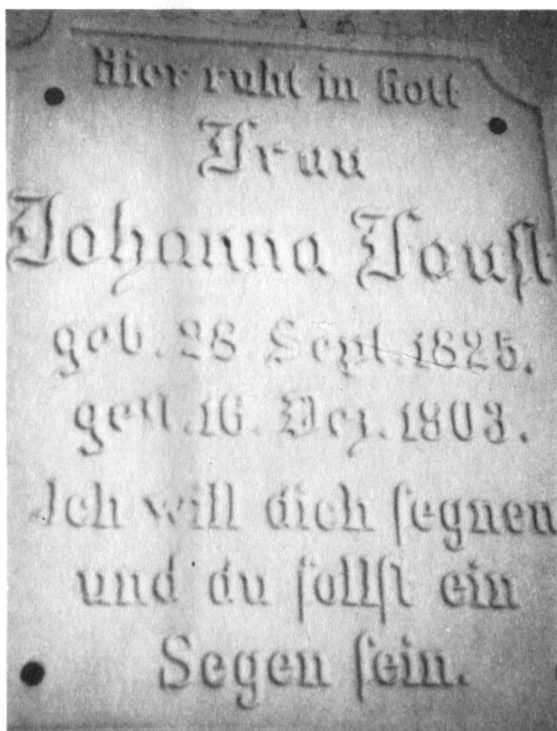 Hier ruht in Gott
Frau
Johanna Faust
geb. 28. Sept. 1825.
gest. 16. Dez. 1903.
Ich will dich segnen
und du sollst ein
Segen sein.